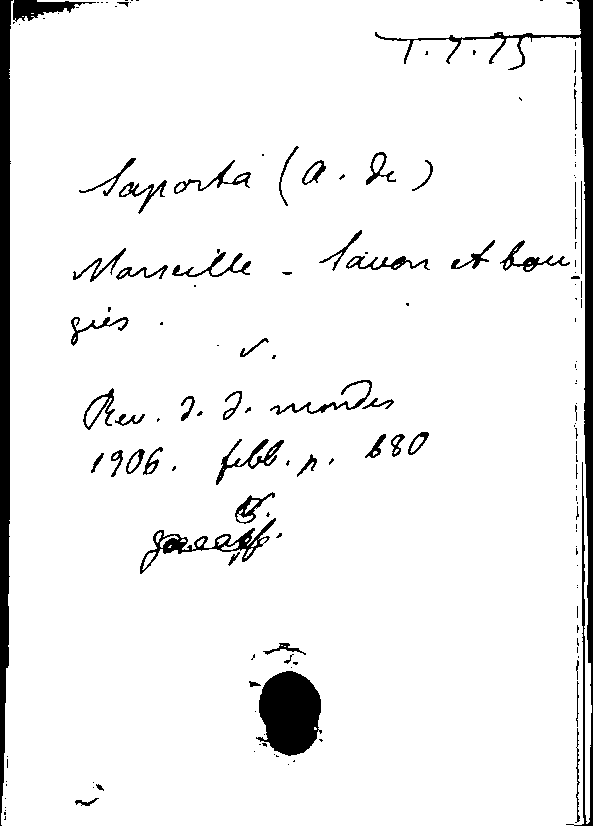 1.7.75
Saporta (A. de)
Marseille - Savon et bou
gies.
v.
Rev. d. d. mondes
1906. febb. p. 680
v.